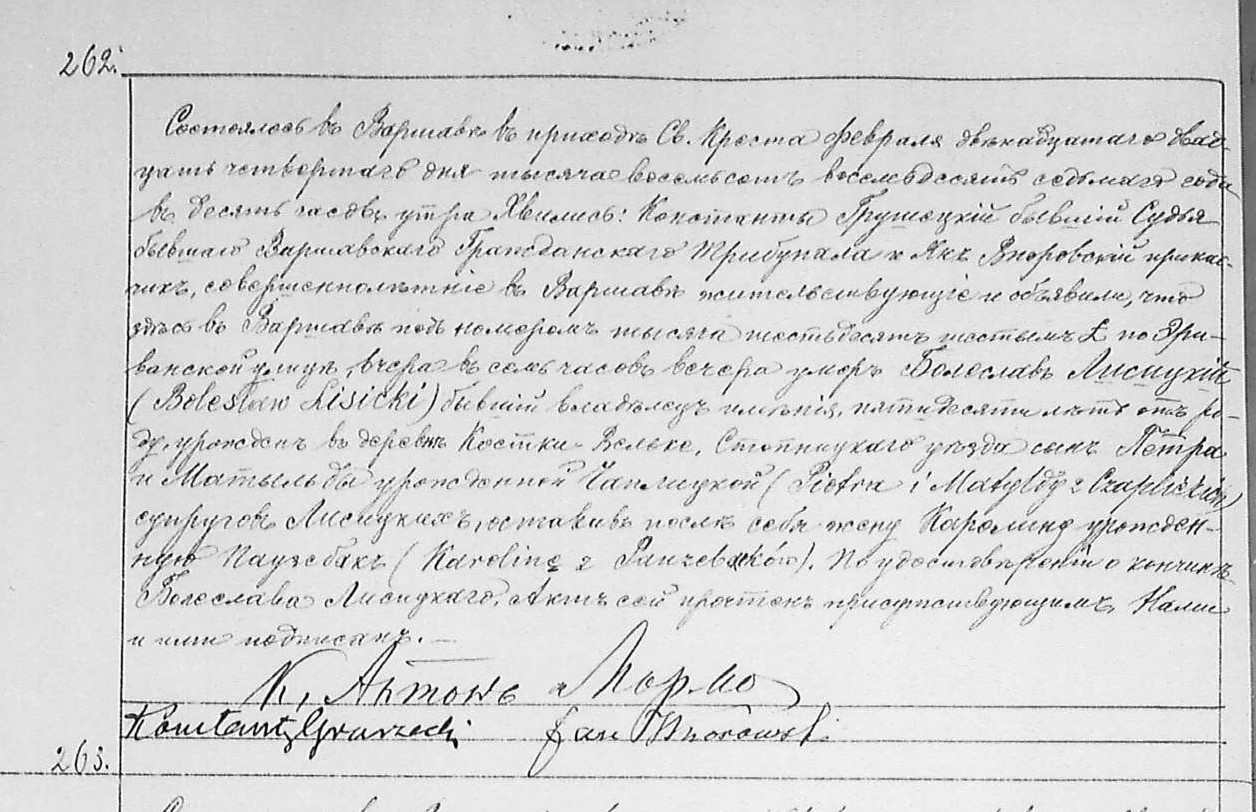 262.
Состоялось въ Варшавѣ въ приходѣ Св. Креста февраля двѣнадцатаго двад-
цать четвертаго дня тысяча восемьсотъ восемьдесятъ седьмаго года
въ десять часовъ утра Явились: Константы Грушецкій бывшій Судья
бывшаго Варшавскаго Гражданскаго Трибунала и Янъ Вноровскій прикас-
чикъ, совершеннолѣтніе въ Варшавѣ жительствующіе и объявили, что
здѣсь въ Варшавѣ подъ номеромъ тысяча шестьдесятъ шестымъ по Эри-
ванской улицѣ, вчера въ семь часовъ вечера умеръ Болеславъ Лисицкій
(Bolesław Lisicki) бывшій владѣлецъ имѣнія, пятидесяти лѣтъ отъ ро-
ду, урожденъ въ деревнѣ Костки-Велке, Стопницкаго уѣзда сынъ Петра
и Матыльды урожденной Чаплицкой (Piotra i Matyldy z Czaplickich)
супруговъ Лисицкихъ, оставивъ послѣ себя жену Каролину урожден-
ную Паузебакъ (Karolinę z Pauzebaków). По удостовѣреніи о кончинѣ
Болеслава Лисицкаго, Актъ сей прочтенъ присутствующимъ, Нами
и ими подписанъ.
К. Антонъ
Konstanty Gruszecki Jan Wnorowski
263.